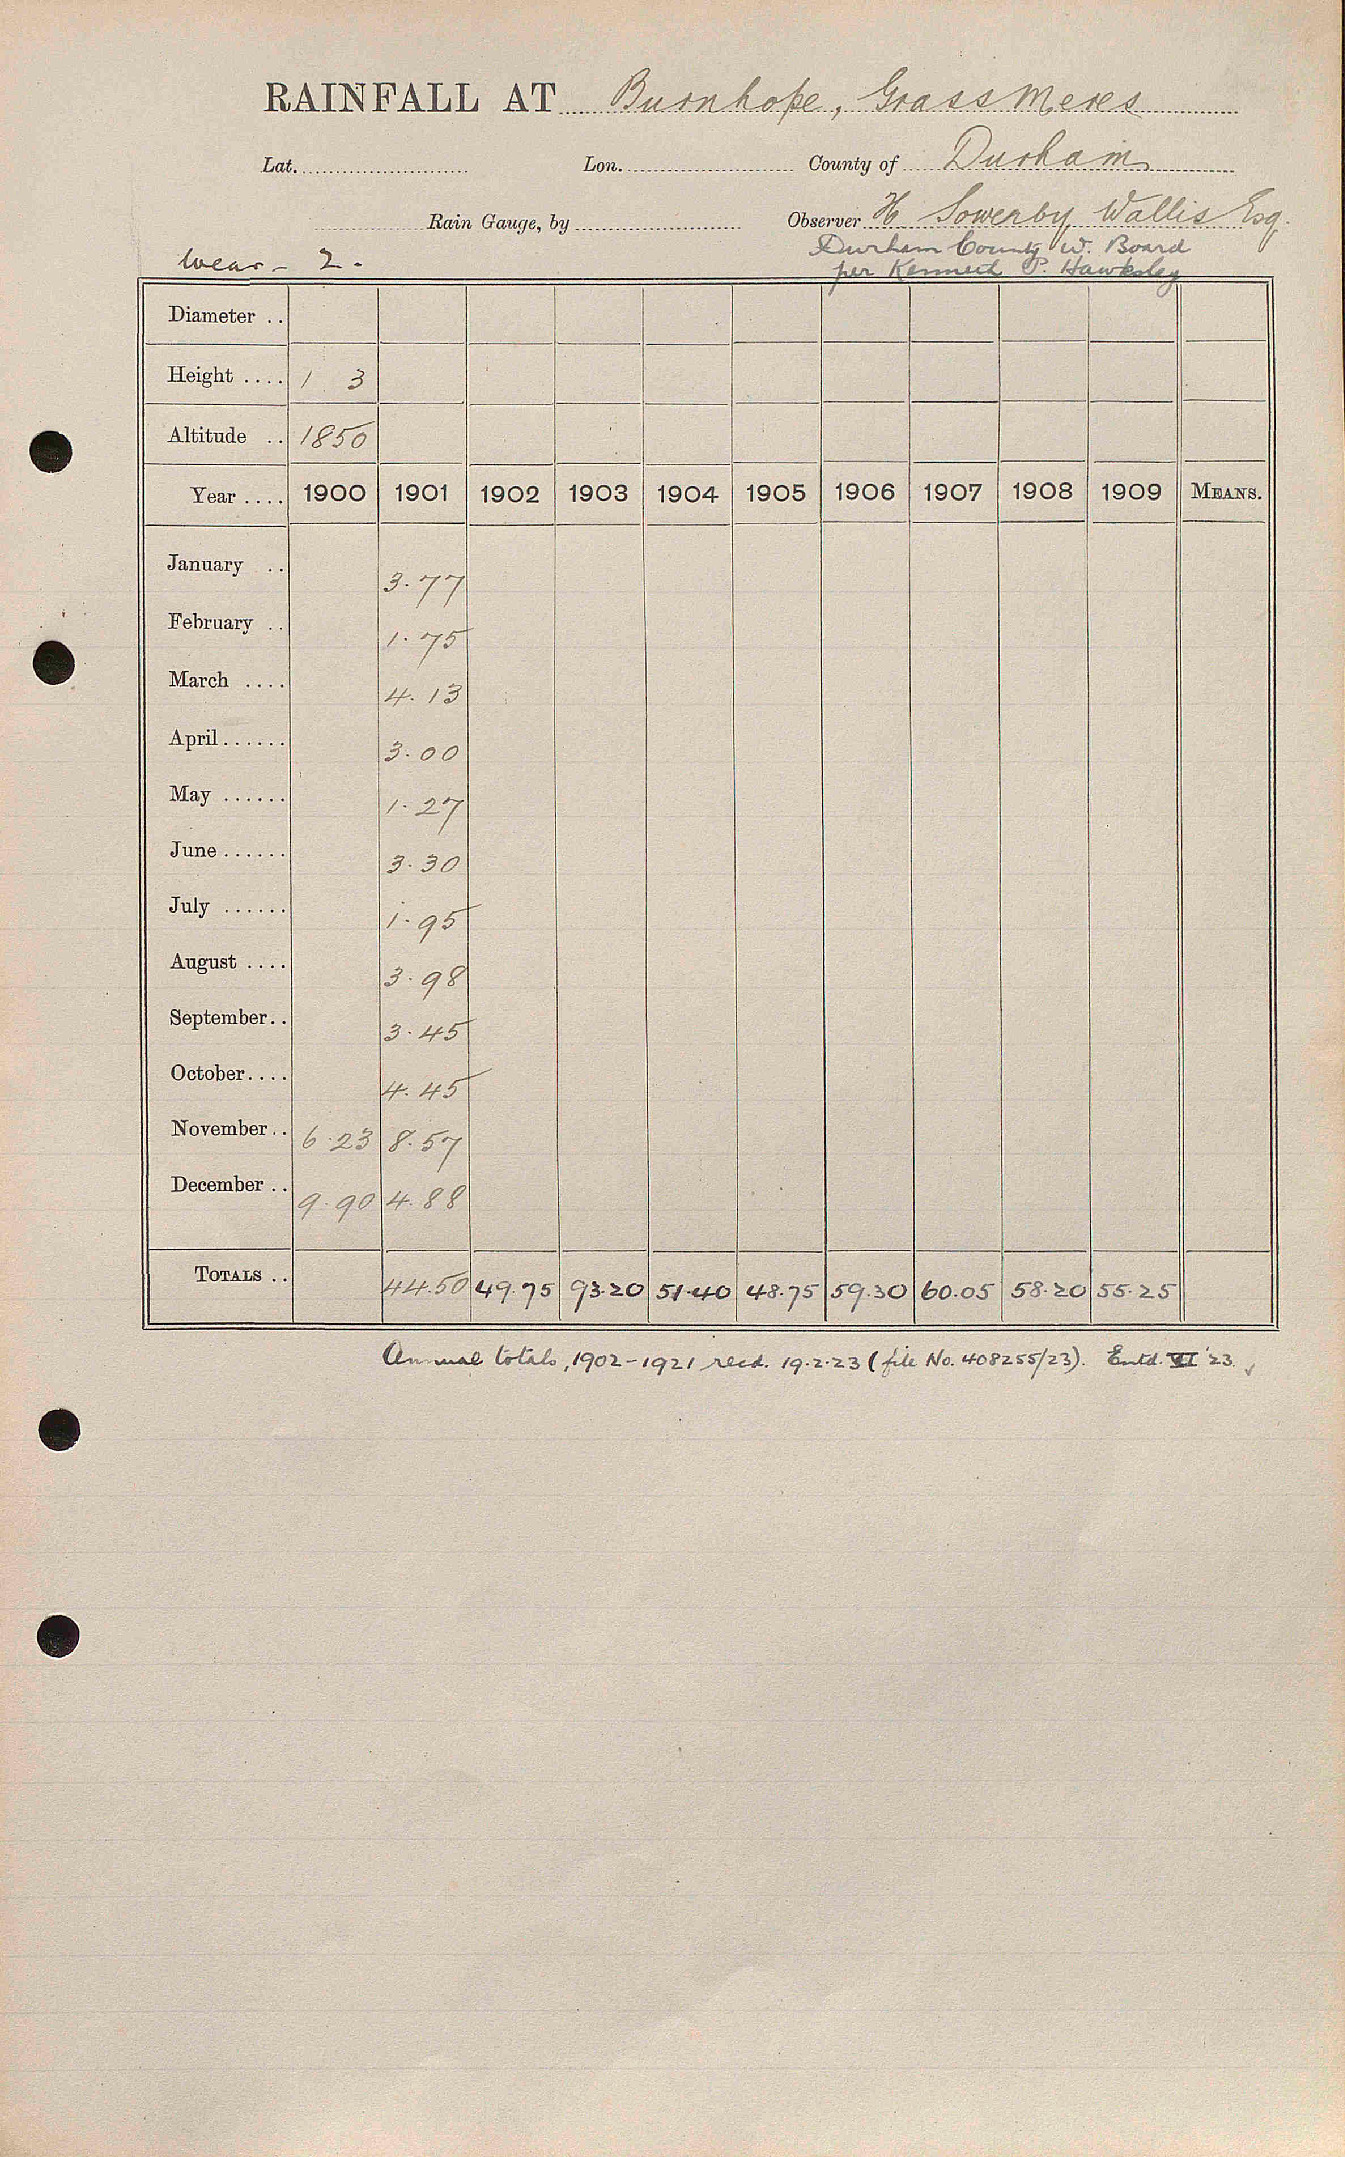 RAINFALL AT Burnhope, Grass Meres
Lat. Lon. County of Durham
Rain Gauge, by Observer H Sowerby Wallis Esq.
Wear - 2. Durham County W. Board
per Kenneth P. Hawksley
Diameter ..
Height .... 1 3
Altitude .. 1850
Year .... 1900 1901 1902 1903 1904 1905 1906 1907 1908 1909 MEANS.
January .. 3.77
February .. 1.75
March .... 4.13
April...... 3.00
May ...... 1.27
June...... 3.30
July ...... 1.95
August .... 3.98
September.. 3.45
October.... 4.45
November.. 6.23 8.57
December .. 9.90 4.88
TOTALS .. 44.50 49.75 93.20 51.40 48.75 59.30 60.05 58.20 55.25
Annual totals, 1902-1921 recd. 19.2.23 (file No. 408255/23). Entd. VI '23